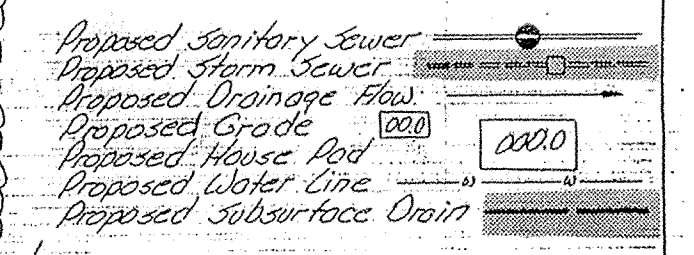 Proposed Sanitary Sewer
Proposed Storm Sewer
Proposed Drainage Flow.
Proposed Grade 00.0
Proposed House Pad 000.0
Proposed Water Line W W
Proposed Subsurface Drain